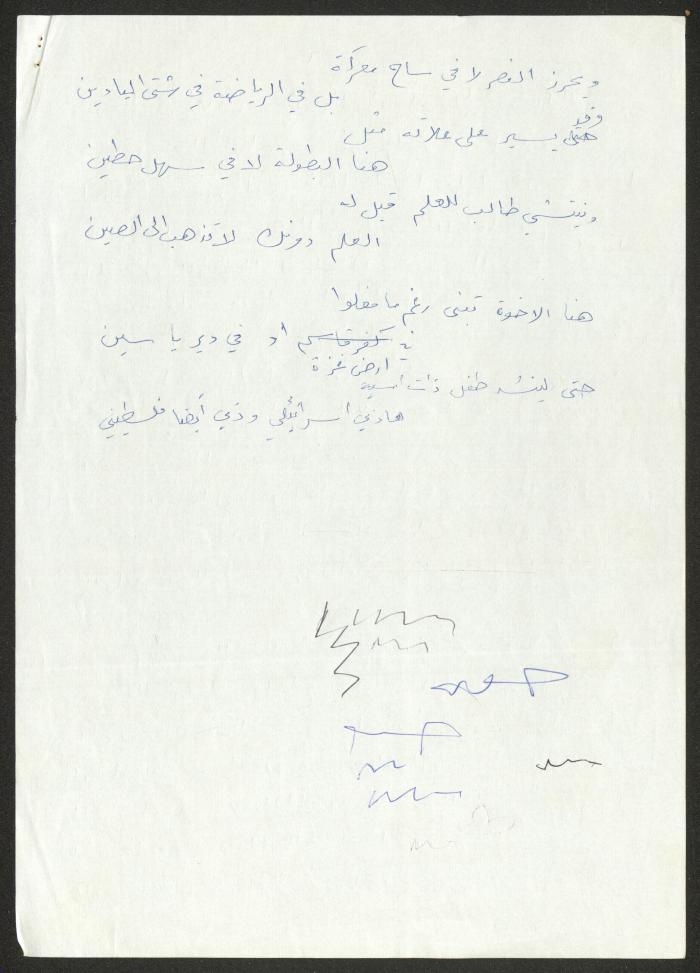 ويحرز النصر لا في ساح معركة
بل في الرياضة في شتى الميادين
وقد
حتى يسير على علاته مثل
هنا البطولة لا في سهل حطين
وينتشي طالب للعلم قيل له
العلم دونك لا تذهب الى الصين
هنا الاخوة تبنى رغم ما فعلوا
في كفر قاسم او في دير ياسين
ارض غزة
حتى لينشد طفل ذات أمسية
هادي اسرائيلي وذي أيضا فلسطيني